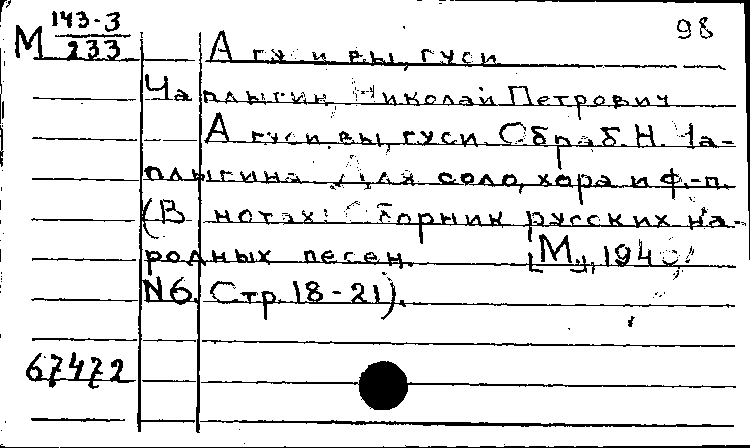 98
М 143-3
233
А гуси вы, гуси
Чаплыгин, Николай Петрович
А гуси, вы, гуси. Обраб. Н. Ча-
плыгина. Для соло, хора и ф.-п.
(В нотах: Сборник русских на-
родных песен. [М.],
N6. Стр. 18-21).
67472